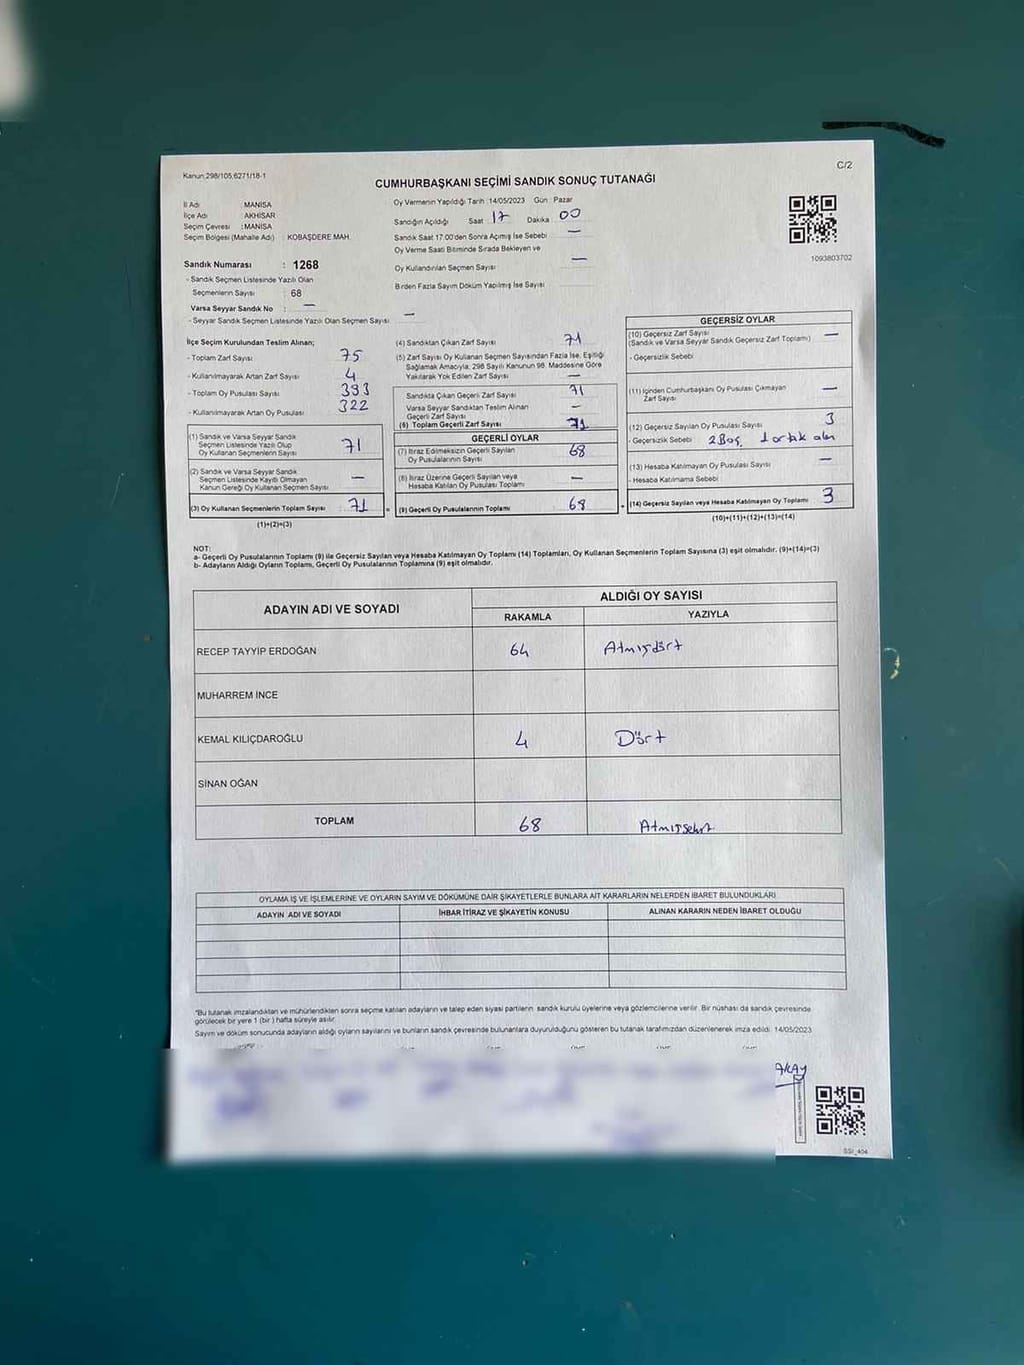 Kanun:298/105,6271/18-1
C/2
CUMHURBAŞKANI SEÇİMİ SANDIK SONUÇ TUTANAĞI
İl Adı : MANİSA
İlçe Adı : AKHİSAR
Seçim Çevresi : MANİSA
Seçim Bölgesi (Mahalle Adı) : KOBAŞDERE MAH.
Sandık Numarası : 1268
- Sandık Seçmen Listesinde Yazılı Olan
Seçmenlerin Sayısı : 68
Varsa Seyyar Sandık No : —
- Seyyar Sandık Seçmen Listesinde Yazılı Olan Seçmen Sayısı : —
Oy Vermenin Yapıldığı Tarih :14/05/2023 Gün : Pazar
Sandığın Açıldığı Saat : 17 Dakika : 00
Sandık Saat 17.00'den Sonra Açımış İse Sebebi —
Oy Verme Saati Bitiminde Sırada Bekleyen ve
Oy Kullandırılan Seçmen Sayısı —
Birden Fazla Sayım Döküm Yapılmış İse Sayısı
1093803702
İlçe Seçim Kurulundan Teslim Alınan;
- Toplam Zarf Sayısı : 75
- Kullanılmayarak Artan Zarf Sayısı : 4
- Toplam Oy Pusulası Sayısı : 393
- Kullanılmayarak Artan Oy Pusulası : 322
(1) Sandık ve Varsa Seyyar Sandık
Seçmen Listesinde Yazılı Olup
Oy Kullanan Seçmenlerin Sayısı : 71
(2) Sandık ve Varsa Seyyar Sandık
Seçmen Listesinde Kayıtlı Olmayan
Kanun Gereği Oy Kullanan Seçmen Sayısı : —
(3) Oy Kullanan Seçmenlerin Toplam Sayısı : 71
(1)+(2)=(3)
(4) Sandıktan Çıkan Zarf Sayısı : 71
(5) Zarf Sayısı Oy Kullanan Seçmen Sayısından Fazla İse, Eşitliği
Sağlamak Amacıyla; 298 Sayılı Kanunun 98. Maddesine Göre
Yakılarak Yok Edilen Zarf Sayısı : —
Sandıkta Çıkan Geçerli Zarf Sayısı : 71
Varsa Seyyar Sandıktan Teslim Alınan
Geçerli Zarf Sayısı : —
(6) Toplam Geçerli Zarf Sayısı : 71
GEÇERLİ OYLAR
(7) İtiraz Edilmeksizin Geçerli Sayılan
Oy Pusulalarının Sayısı : 68
(8) İtiraz Üzerine Geçerli Sayılan veya
Hesaba Katılan Oy Pusulası Toplamı : —
(9) Geçerli Oy Pusulalarının Toplamı : 68
GEÇERSİZ OYLAR
(10) Geçersiz Zarf Sayısı : —
(Sandık ve Varsa Seyyar Sandık Geçersiz Zarf Toplamı)
- Geçersizlik Sebebi
(11) İçinden Cumhurbaşkanı Oy Pusulası Çıkmayan
Zarf Sayısı : —
(12) Geçersiz Sayılan Oy Pusulası Sayısı : 3
- Geçersizlik Sebebi : 2 Boş, 1 ortak alan
(13) Hesaba Katılmayan Oy Pusulası Sayısı : —
- Hesaba Katılmama Sebebi
(14) Geçersiz Sayılan veya Hesaba Katılmayan Oy Toplamı : 3
(10)+(11)+(12)+(13)=(14)
NOT:
a- Geçerli Oy Pusulalarının Toplamı (9) ile Geçersiz Sayılan veya Hesaba Katılmayan Oy Toplamı (14) Toplamları, Oy Kullanan Seçmenlerin Toplam Sayısına (3) eşit olmalıdır. (9)+(14)=(3)
b- Adayların Aldığı Oyların Toplamı, Geçerli Oy Pusulalarının Toplamına (9) eşit olmalıdır.
ADAYIN ADI VE SOYADI ALDIĞI OY SAYISI
RAKAMLA YAZIYLA
RECEP TAYYİP ERDOĞAN 64 Atmışdört
MUHARREM İNCE
KEMAL KILIÇDAROĞLU 4 Dört
SİNAN OĞAN
TOPLAM 68 Atmışsekiz
OYLAMA İŞ VE İŞLEMLERİNE VE OYLARIN SAYIM VE DÖKÜMÜNE DAİR ŞİKAYETLERLE BUNLARA AİT KARARLARIN NELERDEN İBARET BULUNDUKLARI
ADAYIN ADI VE SOYADI İHBAR İTİRAZ VE ŞİKAYETİN KONUSU ALINAN KARARIN NEDEN İBARET OLDUĞU
*Bu tutanak imzalandıktan ve mühürlendikten sonra seçime katılan adayların ve talep eden siyasi partilerin sandık kurulu üyelerine veya gözlemcilerine verilir. Bir nüshası da sandık çevresinde
görülecek bir yere 1 (bir) hafta süreyle asılır.
Sayım ve döküm sonucunda adayların aldığı oyların sayılarını ve bunların sandık çevresinde bulunanlara duyurulduğunu gösteren bu tutanak tarafımızdan düzenlenerek imza edildi. 14/05/2023
AKAY
SSI_404